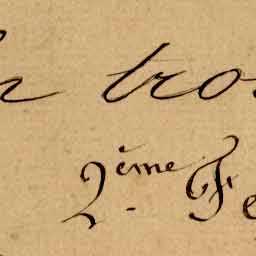 tro
2.ème Fe